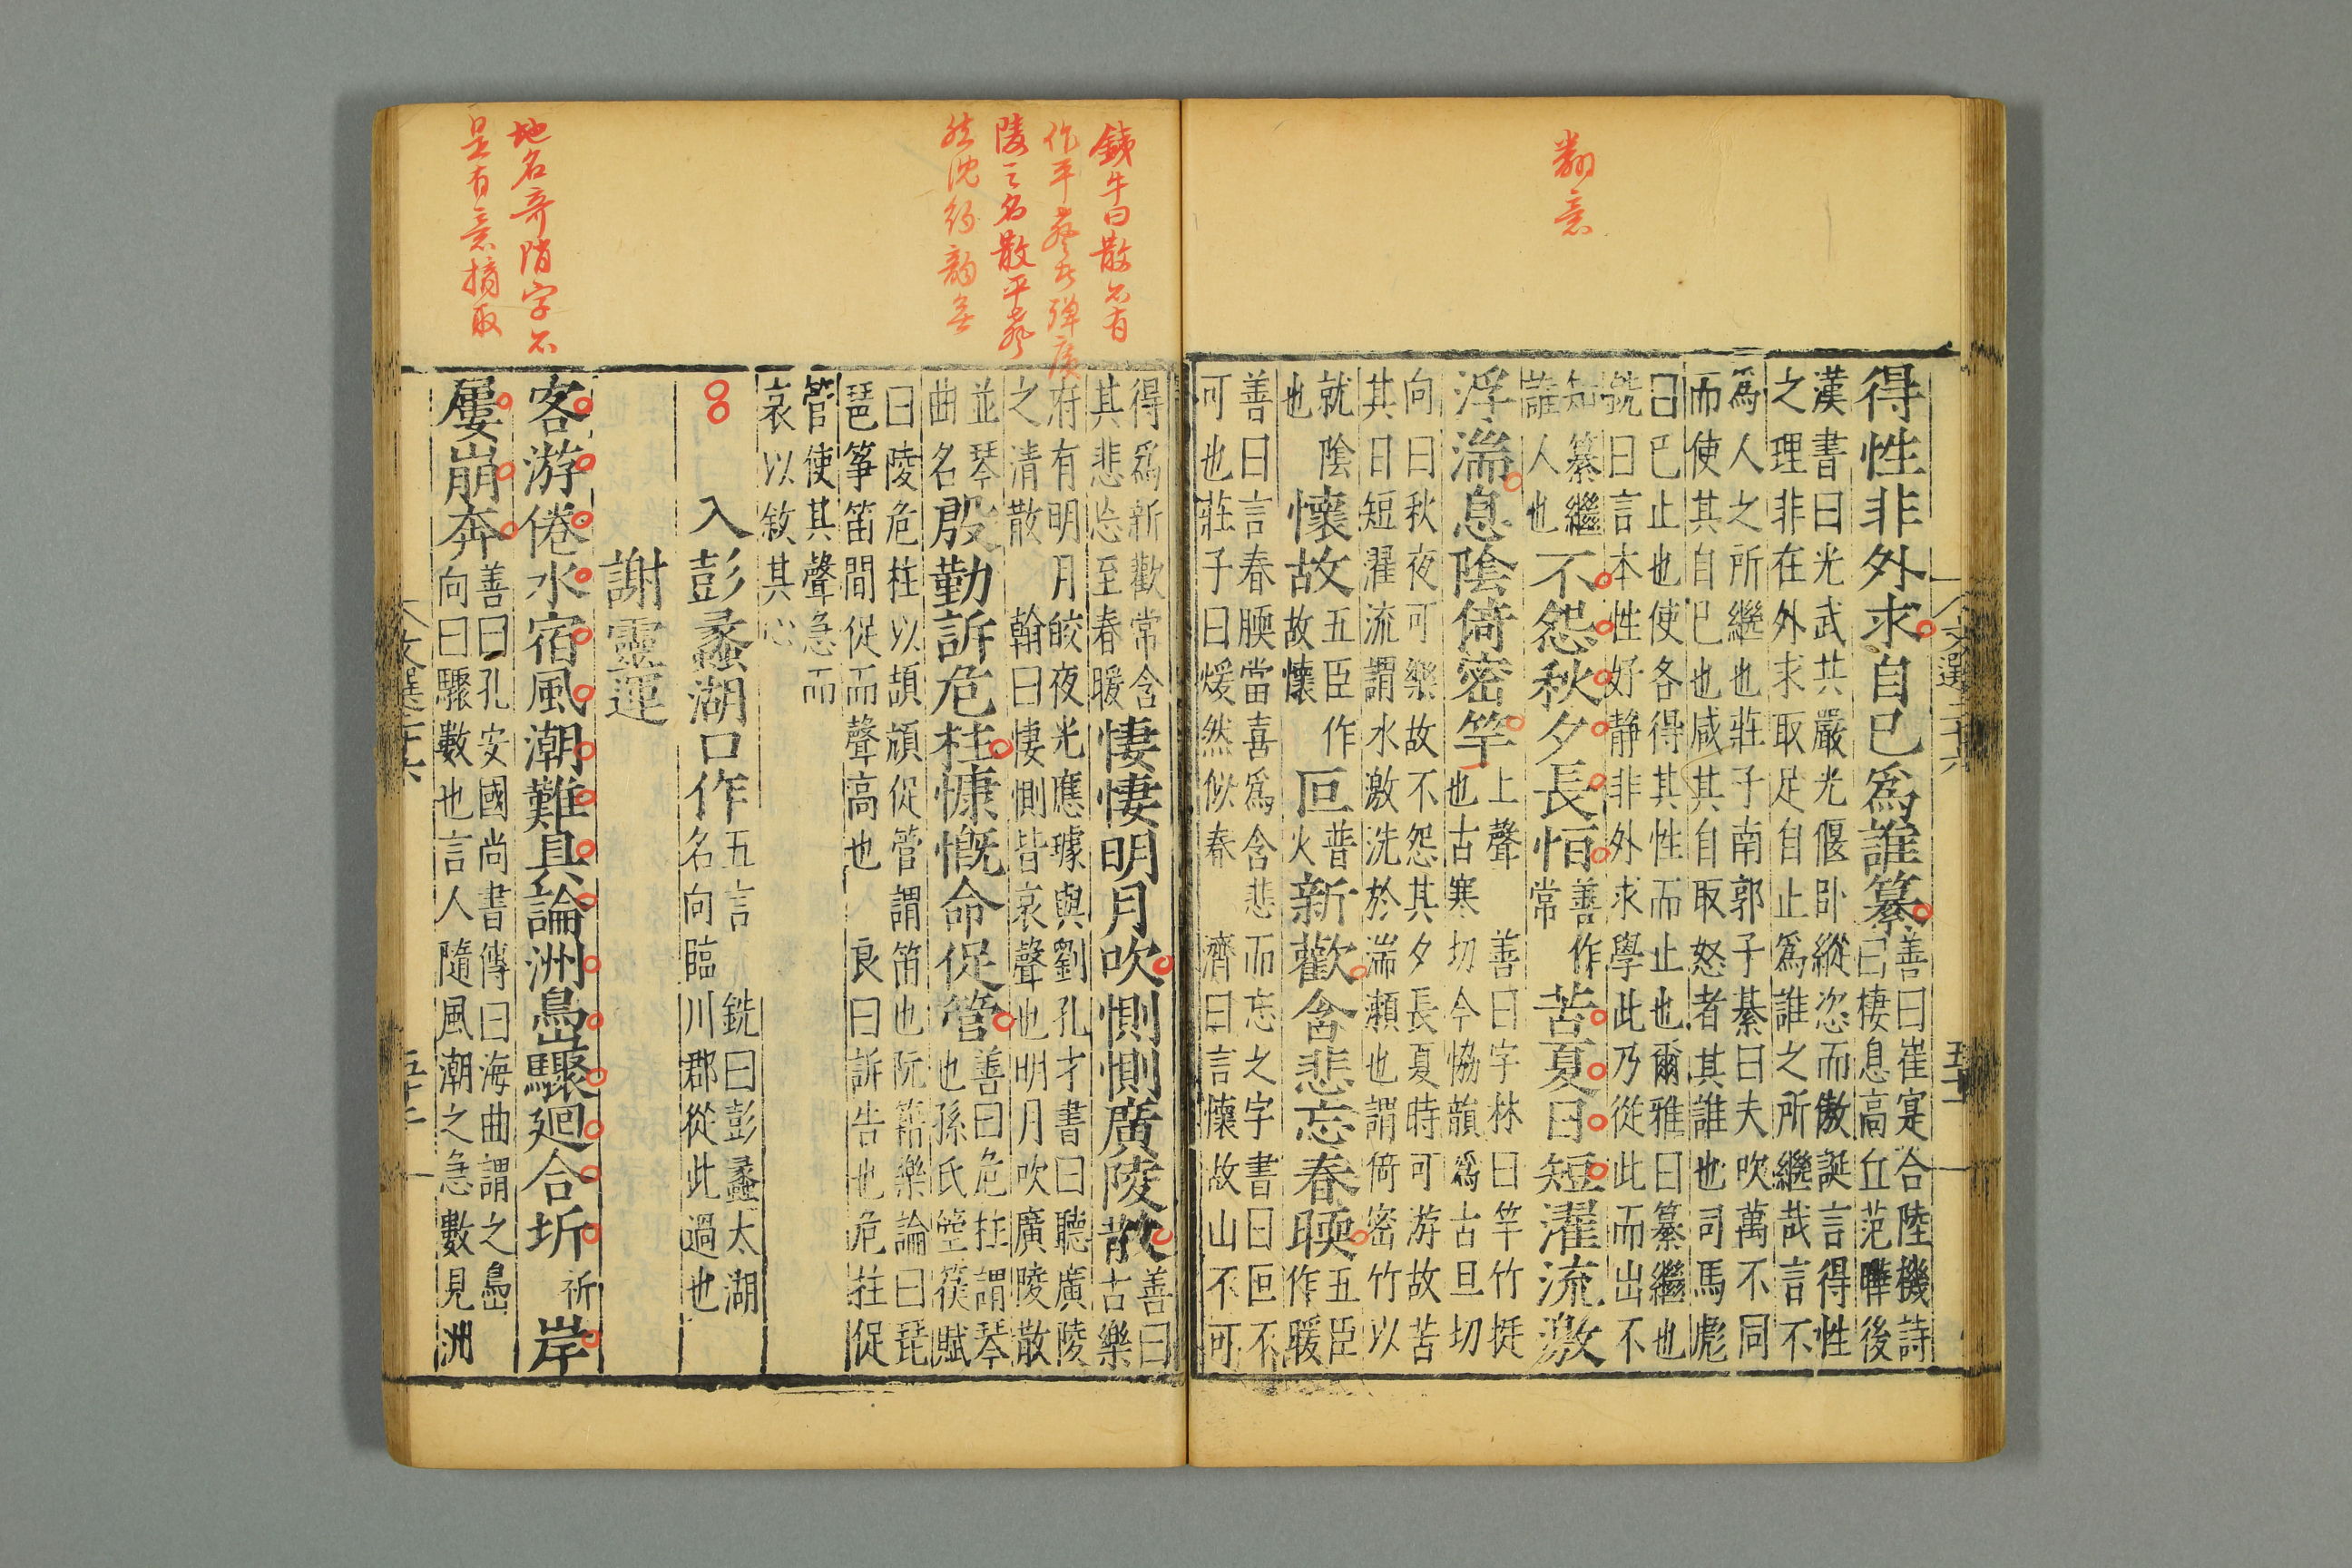 翻意
得性非外求自已爲誰纂善曰崔寔合陸機詩曰棲息高丘范曄後
漢書曰光武共嚴光偃卧縱恣而傲誕言得性之理非在外求取足自止爲誰之所繼哉言不
爲人之所繼也莊子南郭子綦曰夫吹萬不同而使其自巳也咸其自取怒者其誰也司馬彪
曰巳止也使各得其性而止也爾雅曰纂繼也銑曰言本性好静非外求學此乃從此而出不
知纂繼誰人也不怨秋夕長恒善作常苦夏日短濯流激
浮湍息陰倚密竿上聲也古寒切今恊韻爲古旦切善曰字林曰竿竹挺
向曰秋夜可樂故不怨其夕長夏時可游故苦其日短濯流謂水激洗於湍瀬也謂倚密竹以
就陰也懷故五臣作故懷叵普火新歡含悲忘春暎五臣作暖
善曰言春腝當喜爲含悲而忘之字書曰叵不可也莊子曰煖然似春濟曰言懷故山不可
文選二十六
五十一
銕牛曰散各有
作平聲者彈廣
陵之名散平聲
然沈約韵無
得爲新歡常含其悲忘至春暖悽悽明月吹惻惻廣陵散善曰古樂
府有明月皎夜光應璩與劉孔才書曰聽廣陵之清散翰曰悽惻皆哀聲也明月吹廣陵散
並琴曲名殷勤訴危柱慷慨命促管善曰危柱謂琴也孫氏箜篌賦
曰陵危柱以頡頏促管謂笛也阮籍樂論曰琵琶筝笛間促而聲高也良曰訴告也危柱促
管使其聲急而哀以敘其心
入彭蠡湖口作五言銑曰彭蠡太湖名向臨川郡從此過也
謝靈運
地名奇階字不
是有意摘取
客游倦水宿風潮難具論洲島驟廻合圻祈岸
屢崩奔善曰孔安國尚書傳曰海曲謂之島向曰驟數也言人隨風潮之急數見洲
文選二十六
五十一